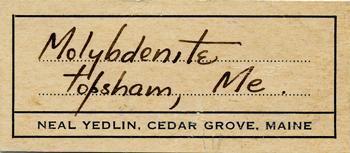 Molybdenite
topsham, Me.
NEAL YEDLIN, CEDAR GROVE, MAINE